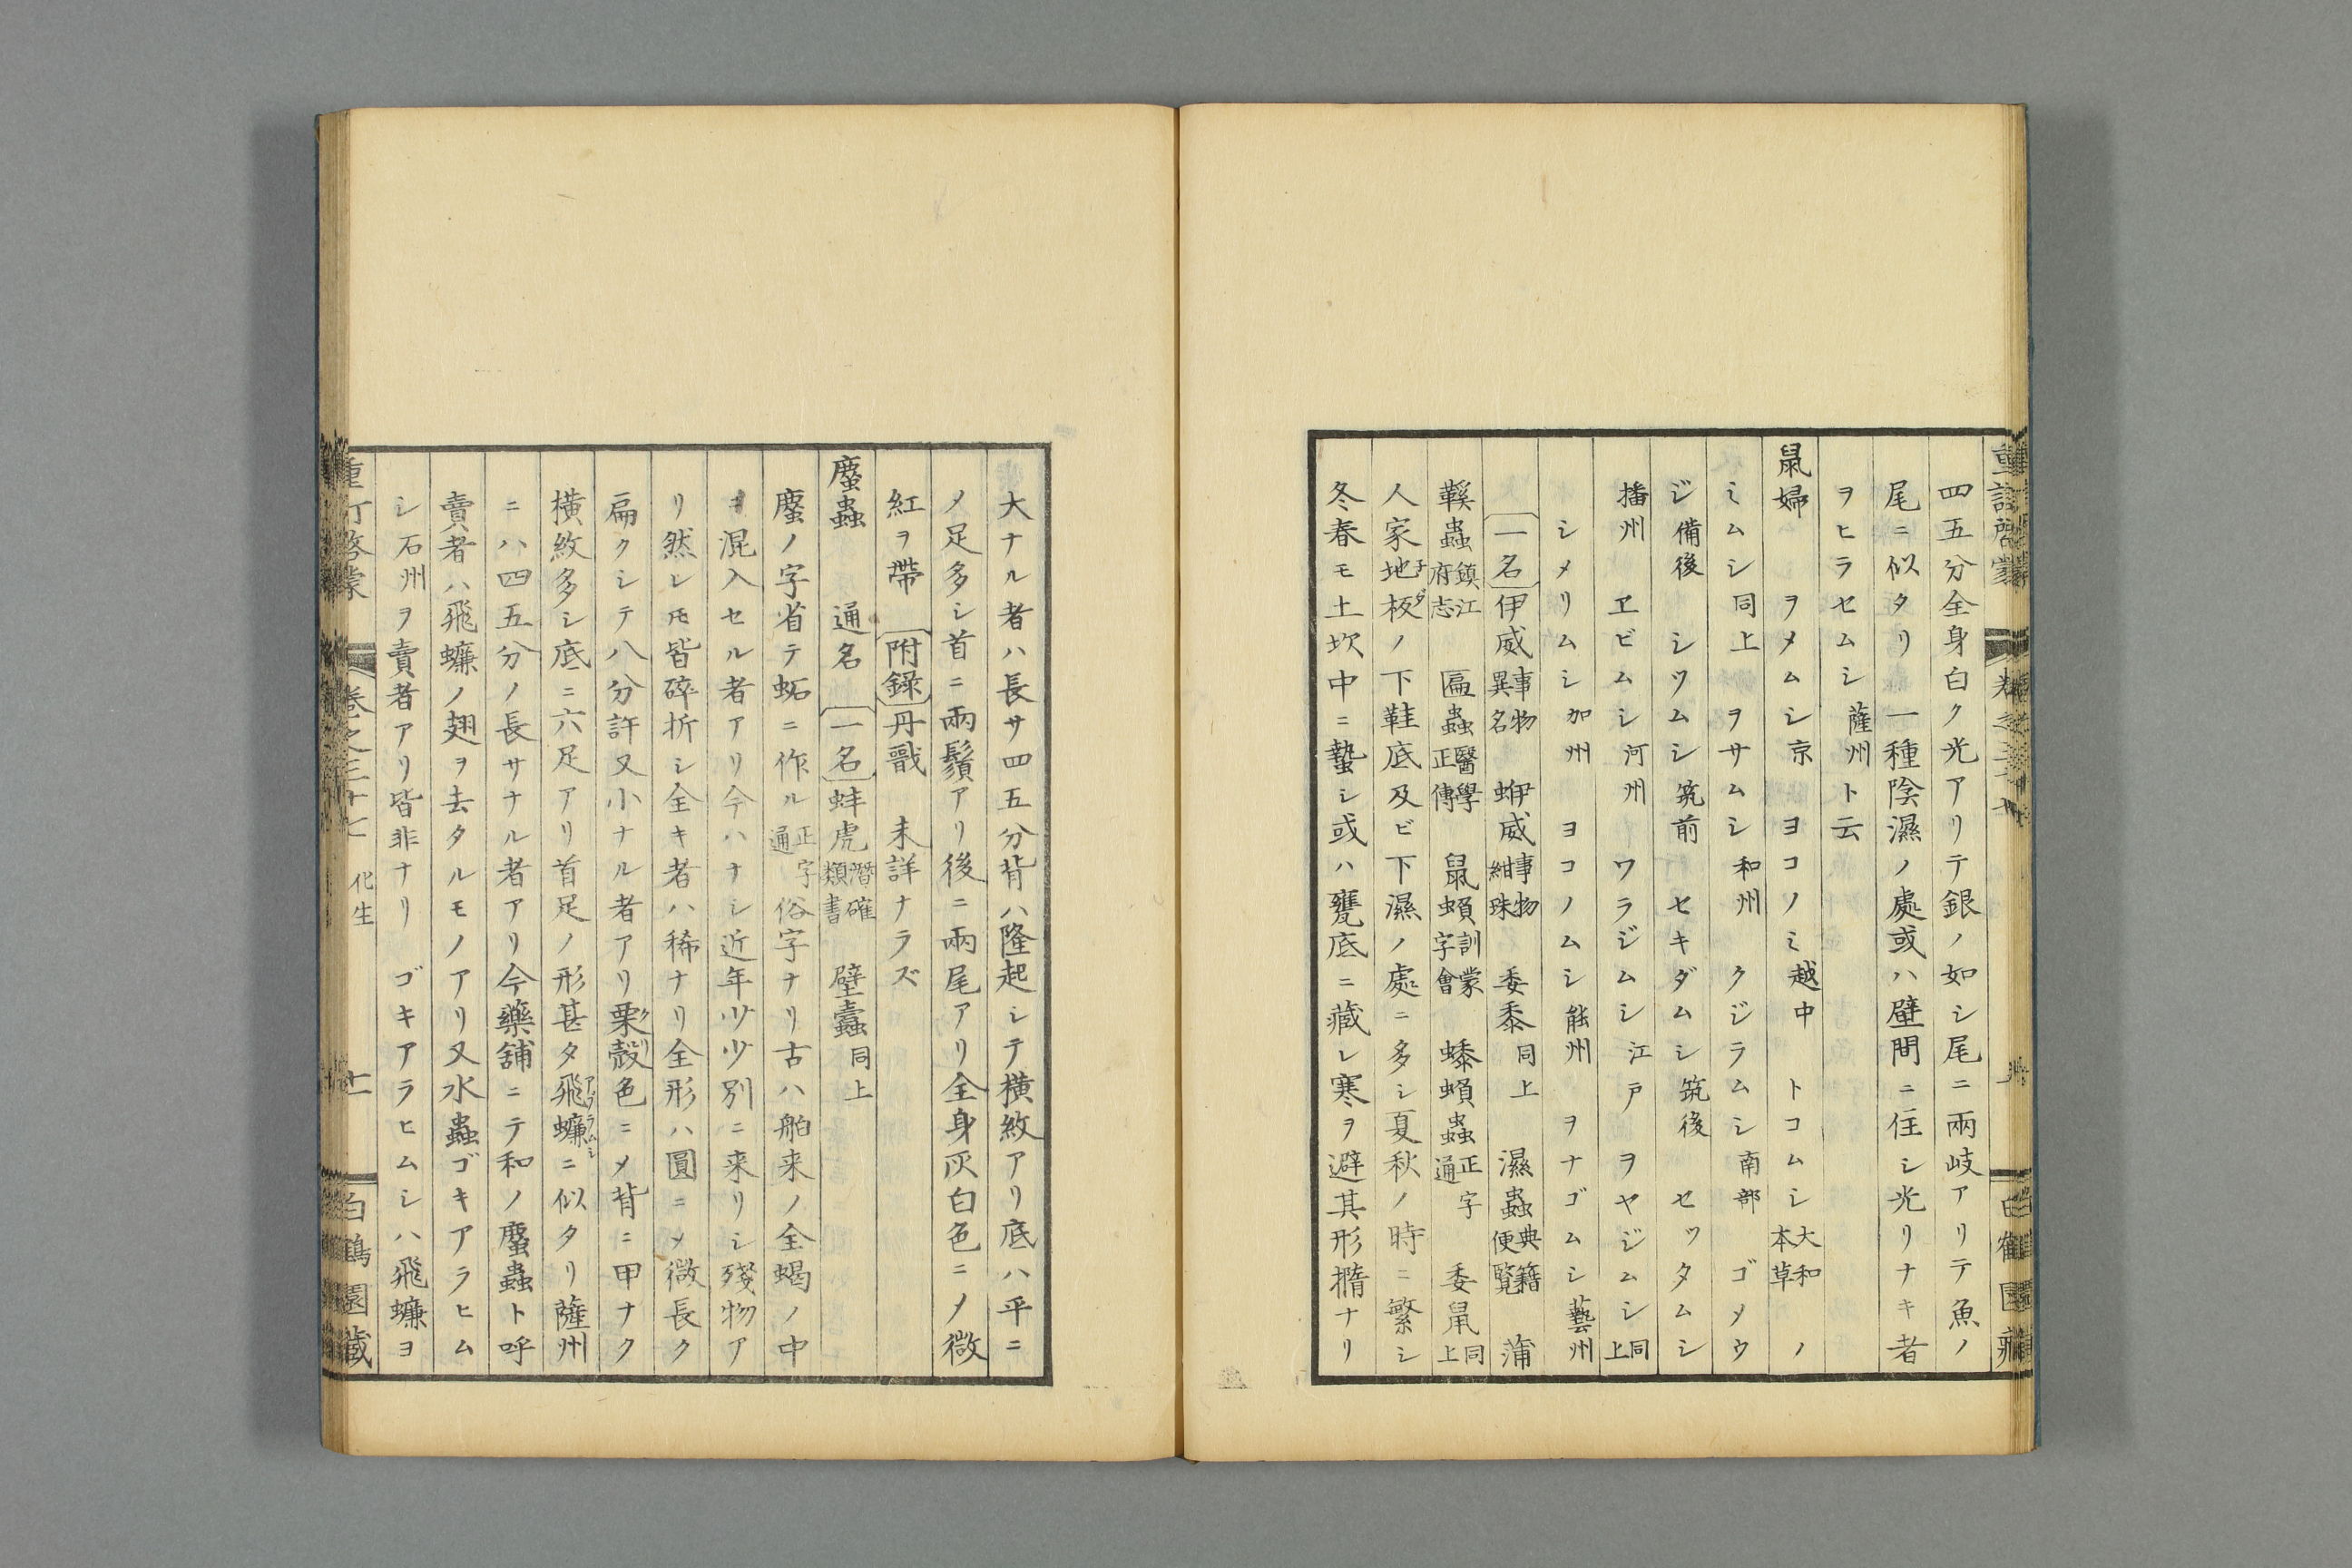 四五分全身白ク光アリテ銀ノ如シ尾ニ兩岐アリテ魚ノ
尾ニ似タリ一種陰濕ノ處或ハ壁間ニ住シ光リナキ者
ヲヒラセムシ薩州ト云
鼠婦 ヲメムシ京 ヨコノミ越中 トコムシ大和本草 ノ
ミムシ同上 ヲサムシ和州 クジラムシ南部 ゴメウ
ジ備後 シツムシ筑前 セキダムシ筑後 セッタムシ
播州 ヱビムシ河州 ワラジムシ江戸 ヲヤジムシ同上
シメリムシ加州 ヨコノムシ能州 ヲナゴムシ藝州
一名伊威事物異名 蛜威事物紺珠 委黍同上 濕蟲典籍便覧 蒲
鞵蟲鎮江府志 匾蟲醫學正傳 鼠蝜訓蒙字會 蟍蝜蟲正字通 委鼠同上
人家地板ノ下鞋底及ビ下濕ノ處ニ多シ夏秋ノ時ニ繁シ
冬春モ土坎中ニ蟄シ或ハ甕底ニ藏レ寒ヲ避其形橢ナリ
大ナル者ハ長サ四五分背ハ隆起シテ横紋アリ底ハ平ニ
〆足多シ首ニ兩鬚アリ後ニ兩尾アリ全身灰白色ニ〆微
紅ヲ帶 附錄丹戬 未詳ナラズ
䗪蟲 通名 一名蚌虎潛確類書 壁蠧同上
䗪ノ字省テ蚳ニ作ル正字通俗字ナリ古ハ舶来ノ全蝎ノ中
ニ混入セル者アリ今ハナシ近年少少別ニ来リシ殘物ア
リ然レ𪜈皆碎折シ全キ者ハ稀ナリ全形ハ圓ニ〆微長ク
扁クシテ八分許又小ナル者アリ栗殼クリ色ニ〆背ニ甲ナク
横紋多シ底ニ六足アリ首足ノ形甚タ飛蠊アブラムシニ似タリ薩州
ニハ四五分ノ長サナル者アリ今藥舗ニテ和ノ䗪蟲ト呼
賣者ハ飛蠊ノ翅ヲ去タルモノアリ又水蟲ゴキアラヒム
シ石州ヲ賣者アリ皆非ナリ ゴキアラヒムシハ飛蠊ヨ
重訂啓蒙 卷之三十七 化生 十一 白鶴園藏